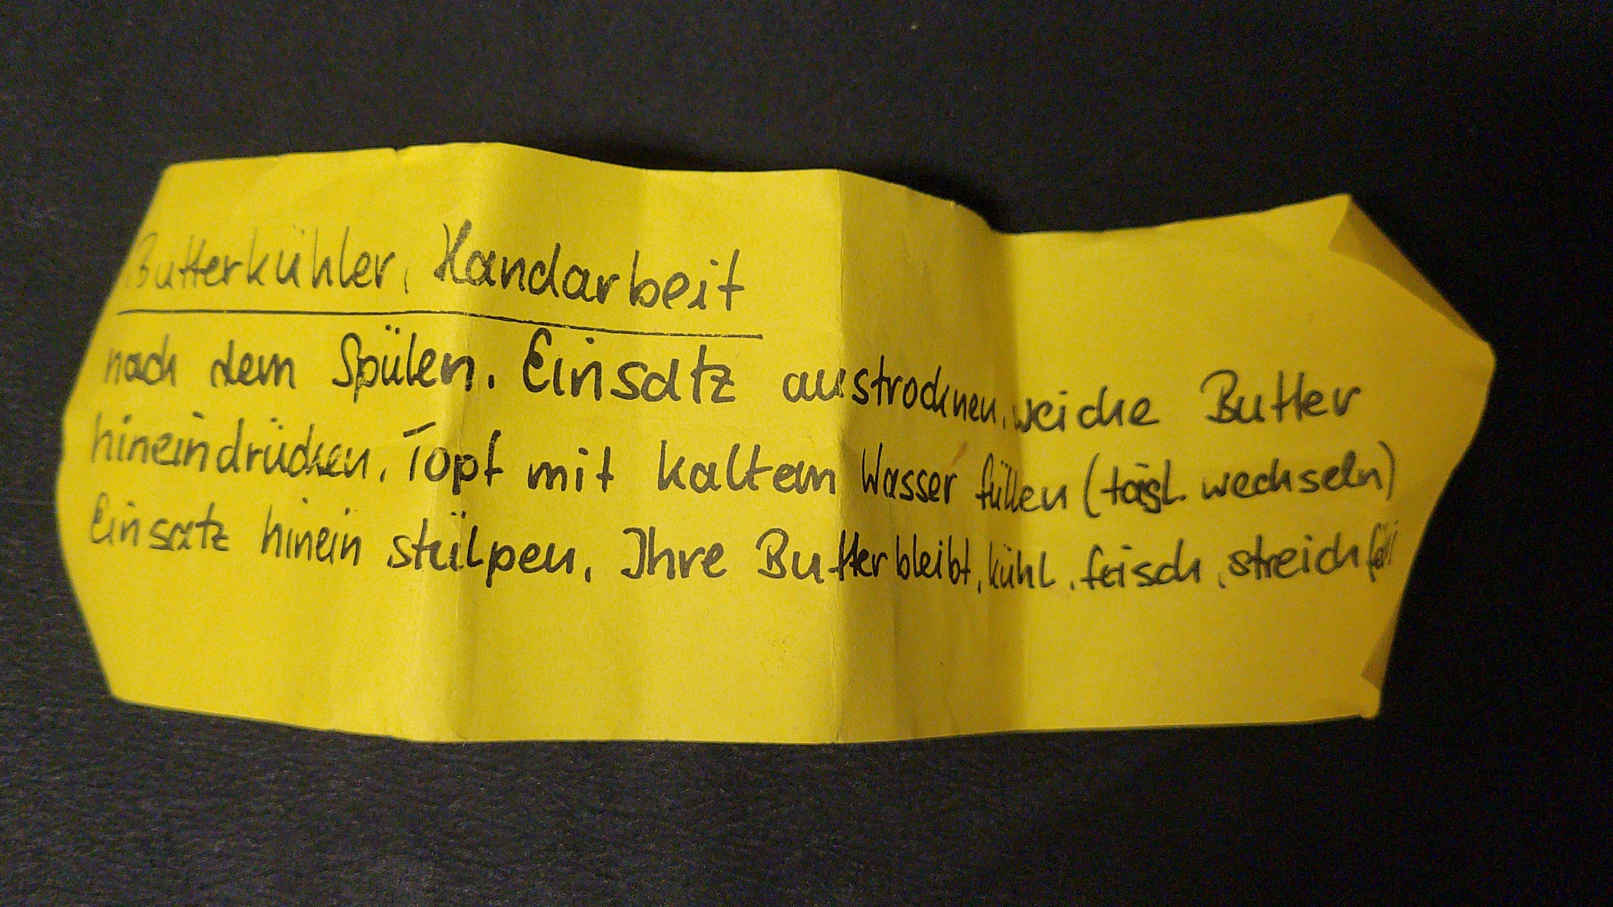 Butterkühler, Handarbeit
nach dem Spülen, Einsatz austrocknen, weiche Butter
hineindrücken, Topf mit kaltem Wasser füllen (tägl. wechseln)
Einsatz hinein stülpen, Ihre Butter bleibt, kühl, frisch, streichfähig